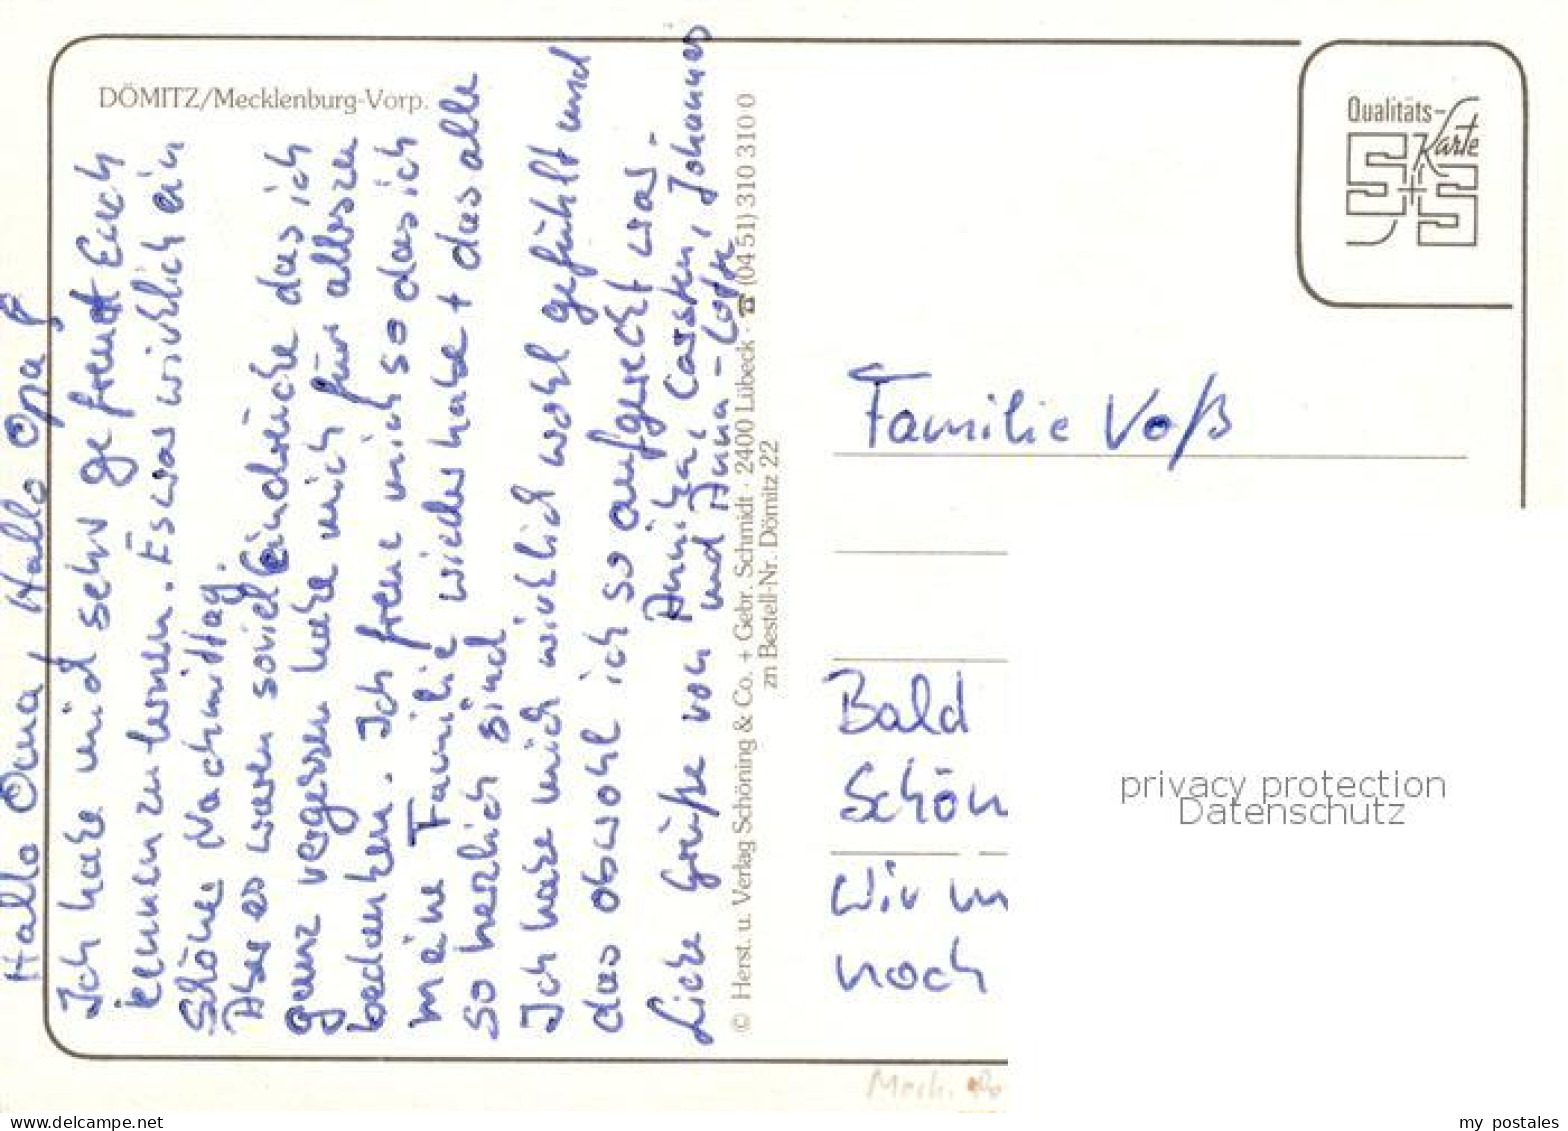 DÖMITZ/Mecklenburg-Vorp.
Hallo Oma, Hallo Opa!
Ich habe mich sehr gefreut Euch
kennenzulernen. Es war wirklich ein
Schöner Nachmittag.
Aber es waren soviel Eindrücke das ich
ganz vergessen habe mich für alles zu
bedanken. Ich freue mich so das ich
meine Familie wieder habe + das alle
so herzlich sind
Ich habe mich wirklich wohl gefühlt und
das obwohl ich so aufgeregt war.
Liebe Grüße von Annika, Carsten, Johannes
und Anna-Lotte
© Herst. u. Verlag Schöning & Co. + Gebr. Schmidt · 2400 Lübeck · ☎ (04 51) 310 310 0
zn Bestell-Nr. Dömitz 22
Qualitäts-Karte
S+S
Familie Voß
Bald
Schön
Wir
noch
privacy protection
Datenschutz
Meck.
www.delcampe.net
my_postales